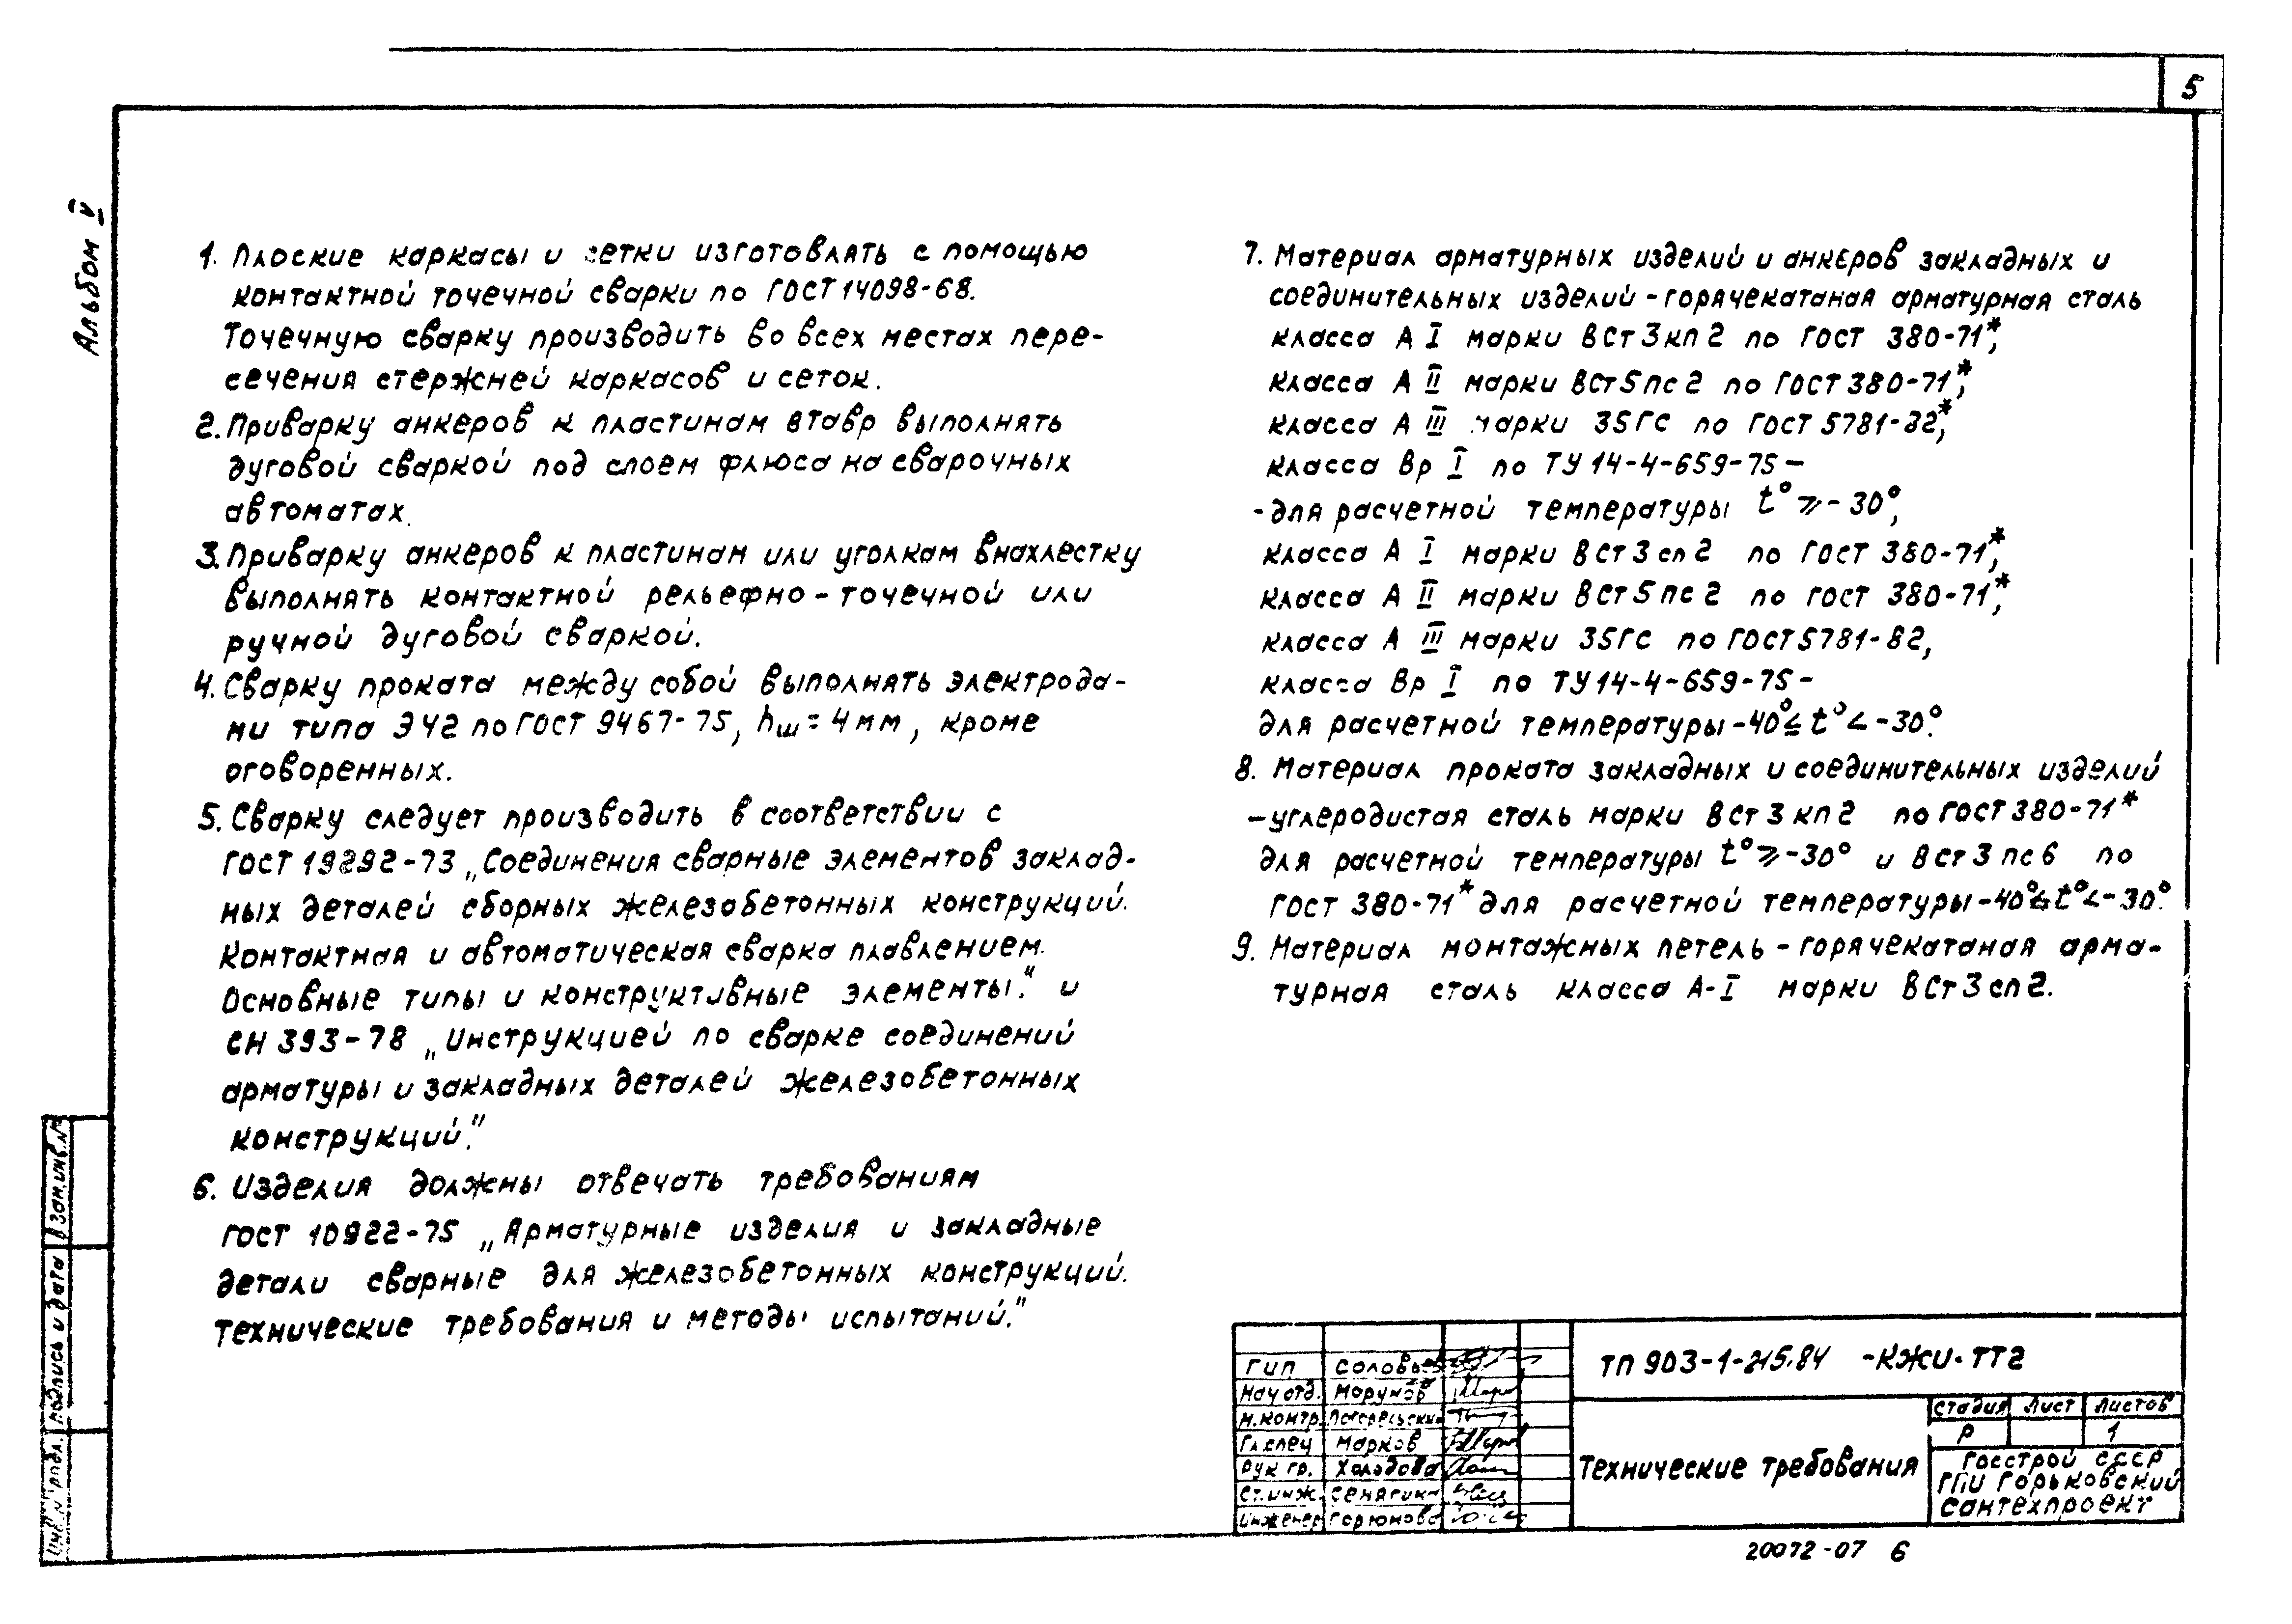 5
Альбом V
1. Плоские каркасы и сетки изготовлять с помощью
контактной точечной сварки по ГОСТ 14098-68.
Точечную сварку производить во всех местах пере-
сечения стержней каркасов и сеток.
2. Приварку анкеров к пластинам втавр выполнять
дуговой сваркой под слоем флюса на сварочных
автоматах.
3. Приварку анкеров к пластинам или уголкам внахлестку
выполнять контактной рельефно-точечной или
ручной дуговой сваркой.
4. Сварку проката между собой выполнять электрода-
ми типа Э42 по ГОСТ 9467-75, hш=4мм, кроме
оговоренных.
5. Сварку следует производить в соответствии с
ГОСТ 19292-73 „Соединения сварные элементов заклад-
ных деталей сборных железобетонных конструкций.
Контактная и автоматическая сварка плавлением.
Основные типы и конструктивные элементы." и
СН 393-78 „Инструкцией по сварке соединений
арматуры и закладных деталей железобетонных
конструкций."
6. Изделия должны отвечать требованиям
ГОСТ 10922-75 „Арматурные изделия и закладные
детали сварные для железобетонных конструкций.
Технические требования и методы испытаний."
7. Материал арматурных изделий и анкеров закладных и
соединительных изделий - горячекатаная арматурная сталь
класса А I марки ВСт3кп2 по ГОСТ 380-71*,
класса А II марки ВСт5пс2 по ГОСТ 380-71*,
класса А III марки 35ГС по ГОСТ 5781-82*,
класса Вр I по ТУ 14-4-659-75 —
- для расчетной температуры t° ⩾ -30°,
класса А I марки ВСт3сп2 по ГОСТ 380-71*,
класса А II марки ВСт5пс2 по ГОСТ 380-71*,
класса А III марки 35ГС по ГОСТ 5781-82,
класса Вр I по ТУ 14-4-659-75 -
для расчетной температуры -40° ≤ t° < -30°.
8. Материал проката закладных и соединительных изделий
- углеродистая сталь марки ВСт3кп2 по ГОСТ 380-71*
для расчетной температуры t° ⩾ -30° и ВСт3пс6 по
ГОСТ 380-71* для расчетной температуры -40° ≤ t° < -30°.
9. Материал монтажных петель - горячекатаная арма-
турная сталь класса А-I марки ВСт3сп2.
Взам.инв.№
Подпись и дата
Инв.№ подл.
ГИП Соловьев
Нач отд. Марунов
Н.контр.
Гл.спец Марков
Рук гр. Холодова
Ст.инж.
Инженер Горюнова
ТП 903-1-215.84 -КЖИ.ТТ2
Технические требования
Стадия Лист Листов
Р 1
Госстрой СССР
ГПИ Горьковский
Сантехпроект
20072-07 6